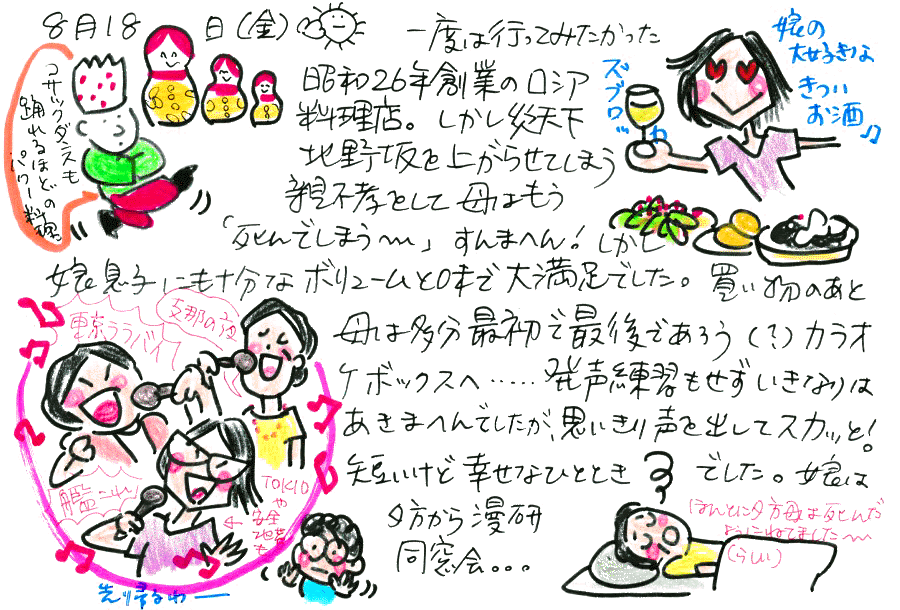 8月18日(金)
一度は行ってみたかった
昭和26年創業のロシア
料理店。しかし炎天下
北野坂を上がらせてしまう
親不孝として母はもう
「死んでしまう〜」すんまへん！しかし
娘息子にも十分なボリュームと味で大満足でした。買い物のあと
母は多分最初で最後であろう(?)カラオ
ケボックスへ……発声練習もせずいきなりは
あきまへんでしたが、思いきり声を出してスカッと！
短いけど幸せなひとときでした。娘は
夕方から漫研
同窓会...
コサックダンスも
踊れるほどの
パワー料理
娘の
大好きな
きつい
お酒♫
ズブロッカ
東京ララバイ
支那の夜
艦これ
TOKIO
や
安全
地帯
も
先り帰るわー
ほんとに夕方母は死んだ
ようにねてました〜
(らしい)